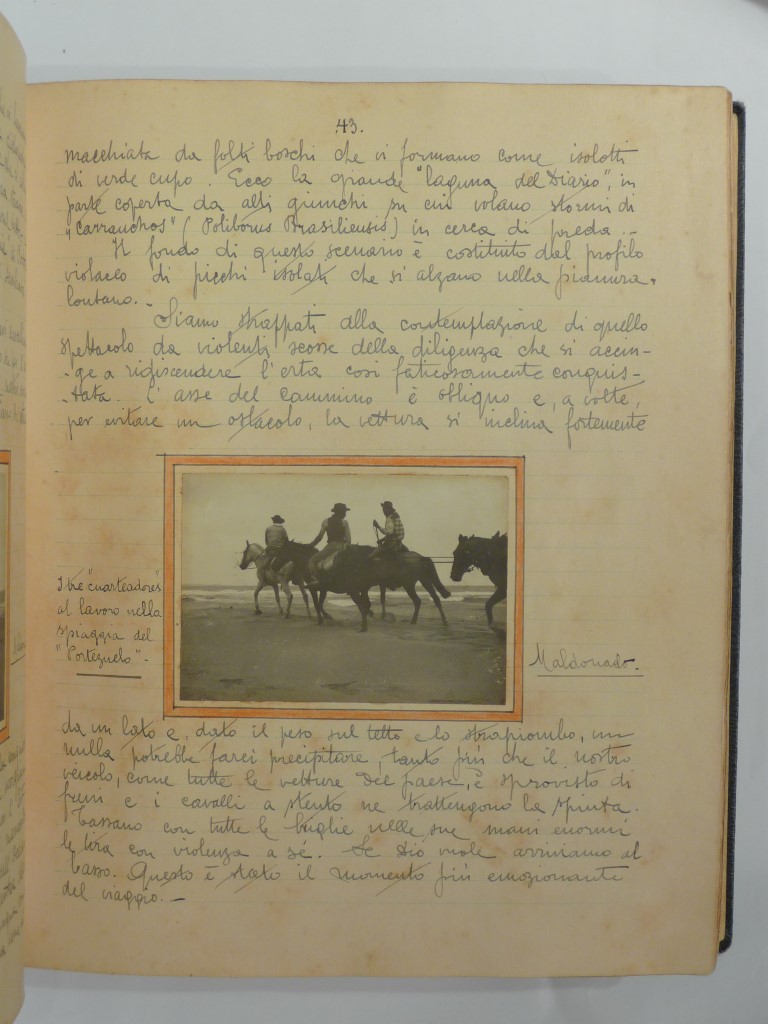 43.
macchiata da folti boschi che vi formano come isolotti
di verde cupo. Ecco la grande "laguna del Diario", in
parte coperta da alti giunchi su cui volano stormi di
"Carranchos" (Poliborus Brasiliensis) in cerca di preda.-
Il fondo di questo scenario è costituito dal profilo
violaceo di picchi isolati che si alzano nella pianura,
lontano.-
Siamo strappati alla contemplazione di quello
spettacolo da violenti scosse della diligenza che si accin-
-ge a ridiscendere l'erta così faticosamente conquis-
-tata. L'asse del cammino è obliquo e, a volte,
per evitare un ostacolo, la vettura si inclina fortemente
I tre "cuarteadores"
al lavoro nella
spiaggia del
"Portezuelo".-
Maldonado.
da un lato e, dato il peso sul tetto e lo strapiombo, un
nulla potrebbe farci precipitare, tanto più che il nostro
veicolo, come tutte le vetture del paese, è sprovisto di
freni e i cavalli a stento ne trattengono la spinta.
Cassano con tutte le briglie nelle sue mani enormi
le tira con violenza a sé. Se Dio vuole arriviamo al
basso. Questo è stato il momento più emozionante
del viaggio.-